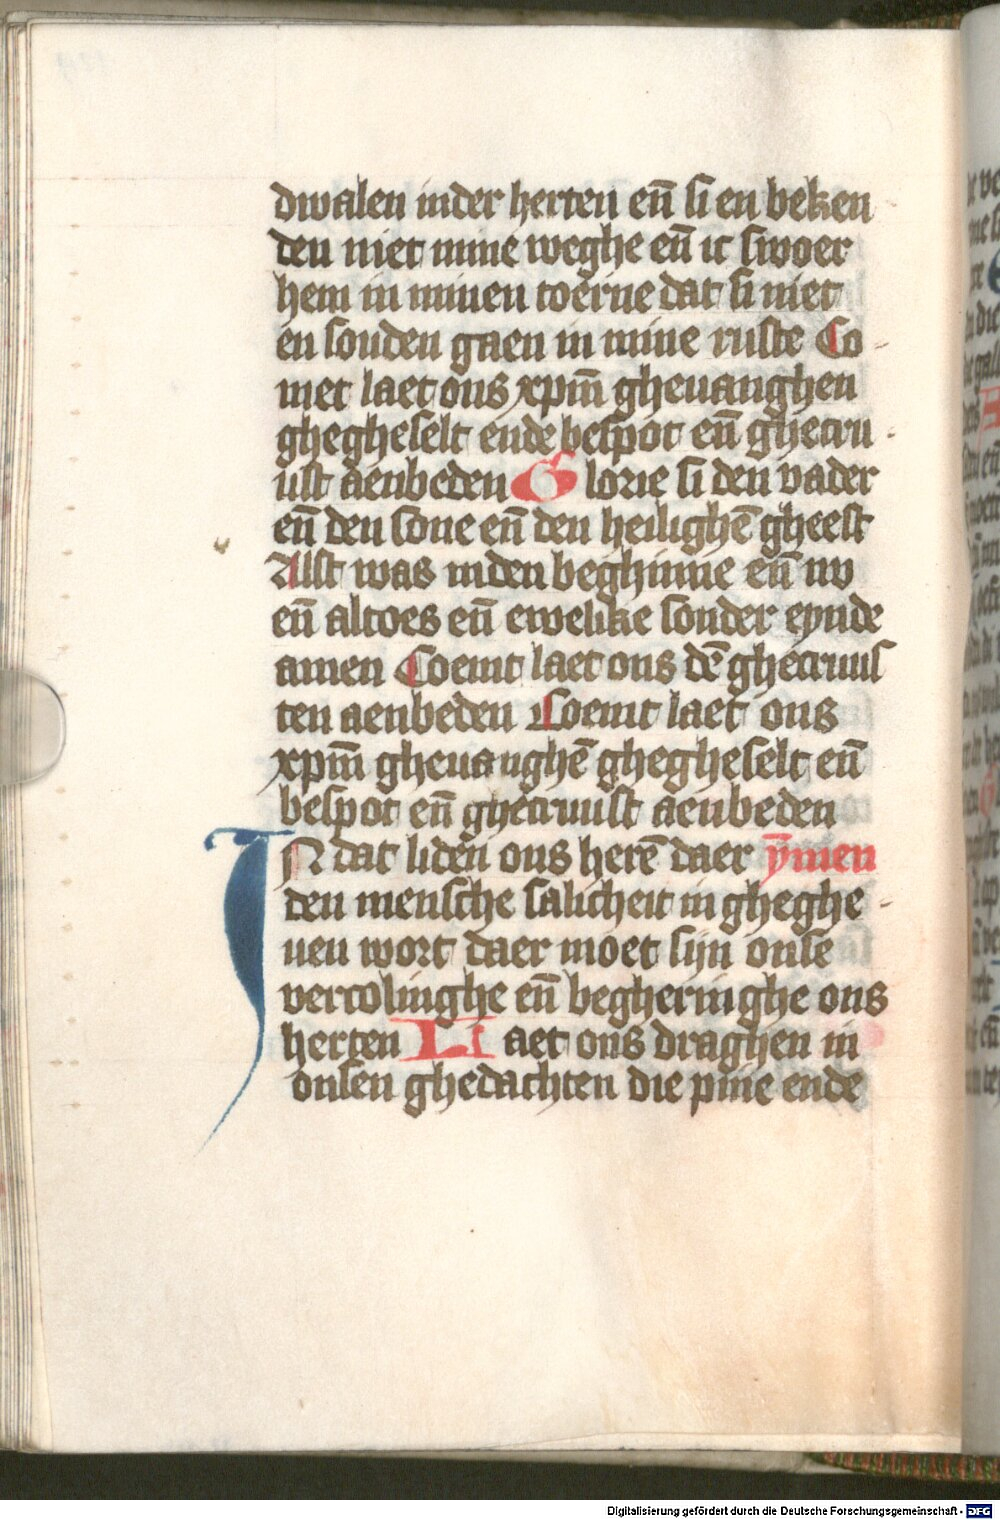 dwalen inder herten en̄ si en beken
den niet mine weghe en̄ ic swoer
hem in minen toerne dat si niet
en souden gaen in mine ruste Co
met laet ons xpm̄ gheuanghen
ghegheselt ende bespot en̄ ghecru
ust aenbeden Glorie si den vader
en̄ den sone en̄ den heilighē gheest
Alst was inden beghinne en̄ nv
en̄ altoes en̄ ewelike sonder eynde
amen Coemt laet ons dē ghecruus
ten aenbeden Coemt laet ons
xpm̄ gheuanghē ghegheselt en̄
bespot en̄ ghecruust aenbeden
IN dat liden ons herē daer ȳmen
den mensche salicheit in gheghe
uen wort daer moet sijn onse
vercolinghe en̄ begheringhe ons
herten Laet ons draghen in
onsen ghedachten die pine ende
Digitalisierung gefördert durch die Deutsche Forschungsgemeinschaft - DFG